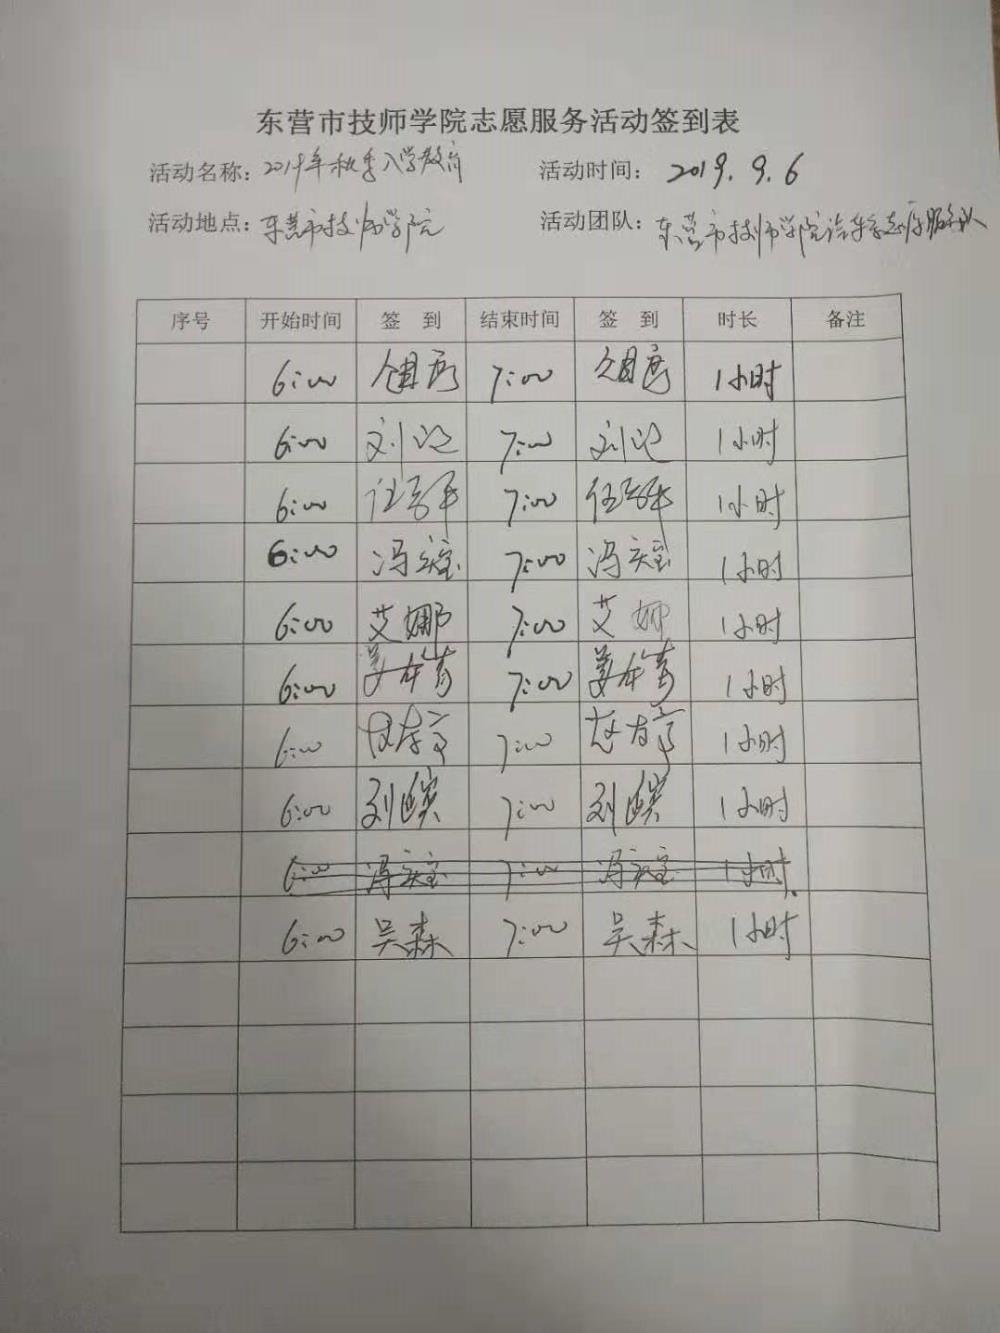 东营市技师学院志愿服务活动签到表
活动名称：2019年秋季入学教育 活动时间：2019.9.6
活动地点：东营市技师学院 活动团队：东营市技师学院汽车系志愿服务队
序号 开始时间 签 到 结束时间 签 到 时长 备注
6:00 7:00 1小时
6:00 刘 7:00 刘 1小时
6:00 7:00 1小时
6:00 冯宝 7:00 冯宝 1小时
6:00 艾娜 7:00 艾娜 1小时
6:00 姜 7:00 姜 1小时
6:00 7:00 1小时
6:00 刘 7:00 刘 1小时
6:00 冯宝 7:00 冯宝 1小时
6:00 吴森 7:00 吴森 1小时